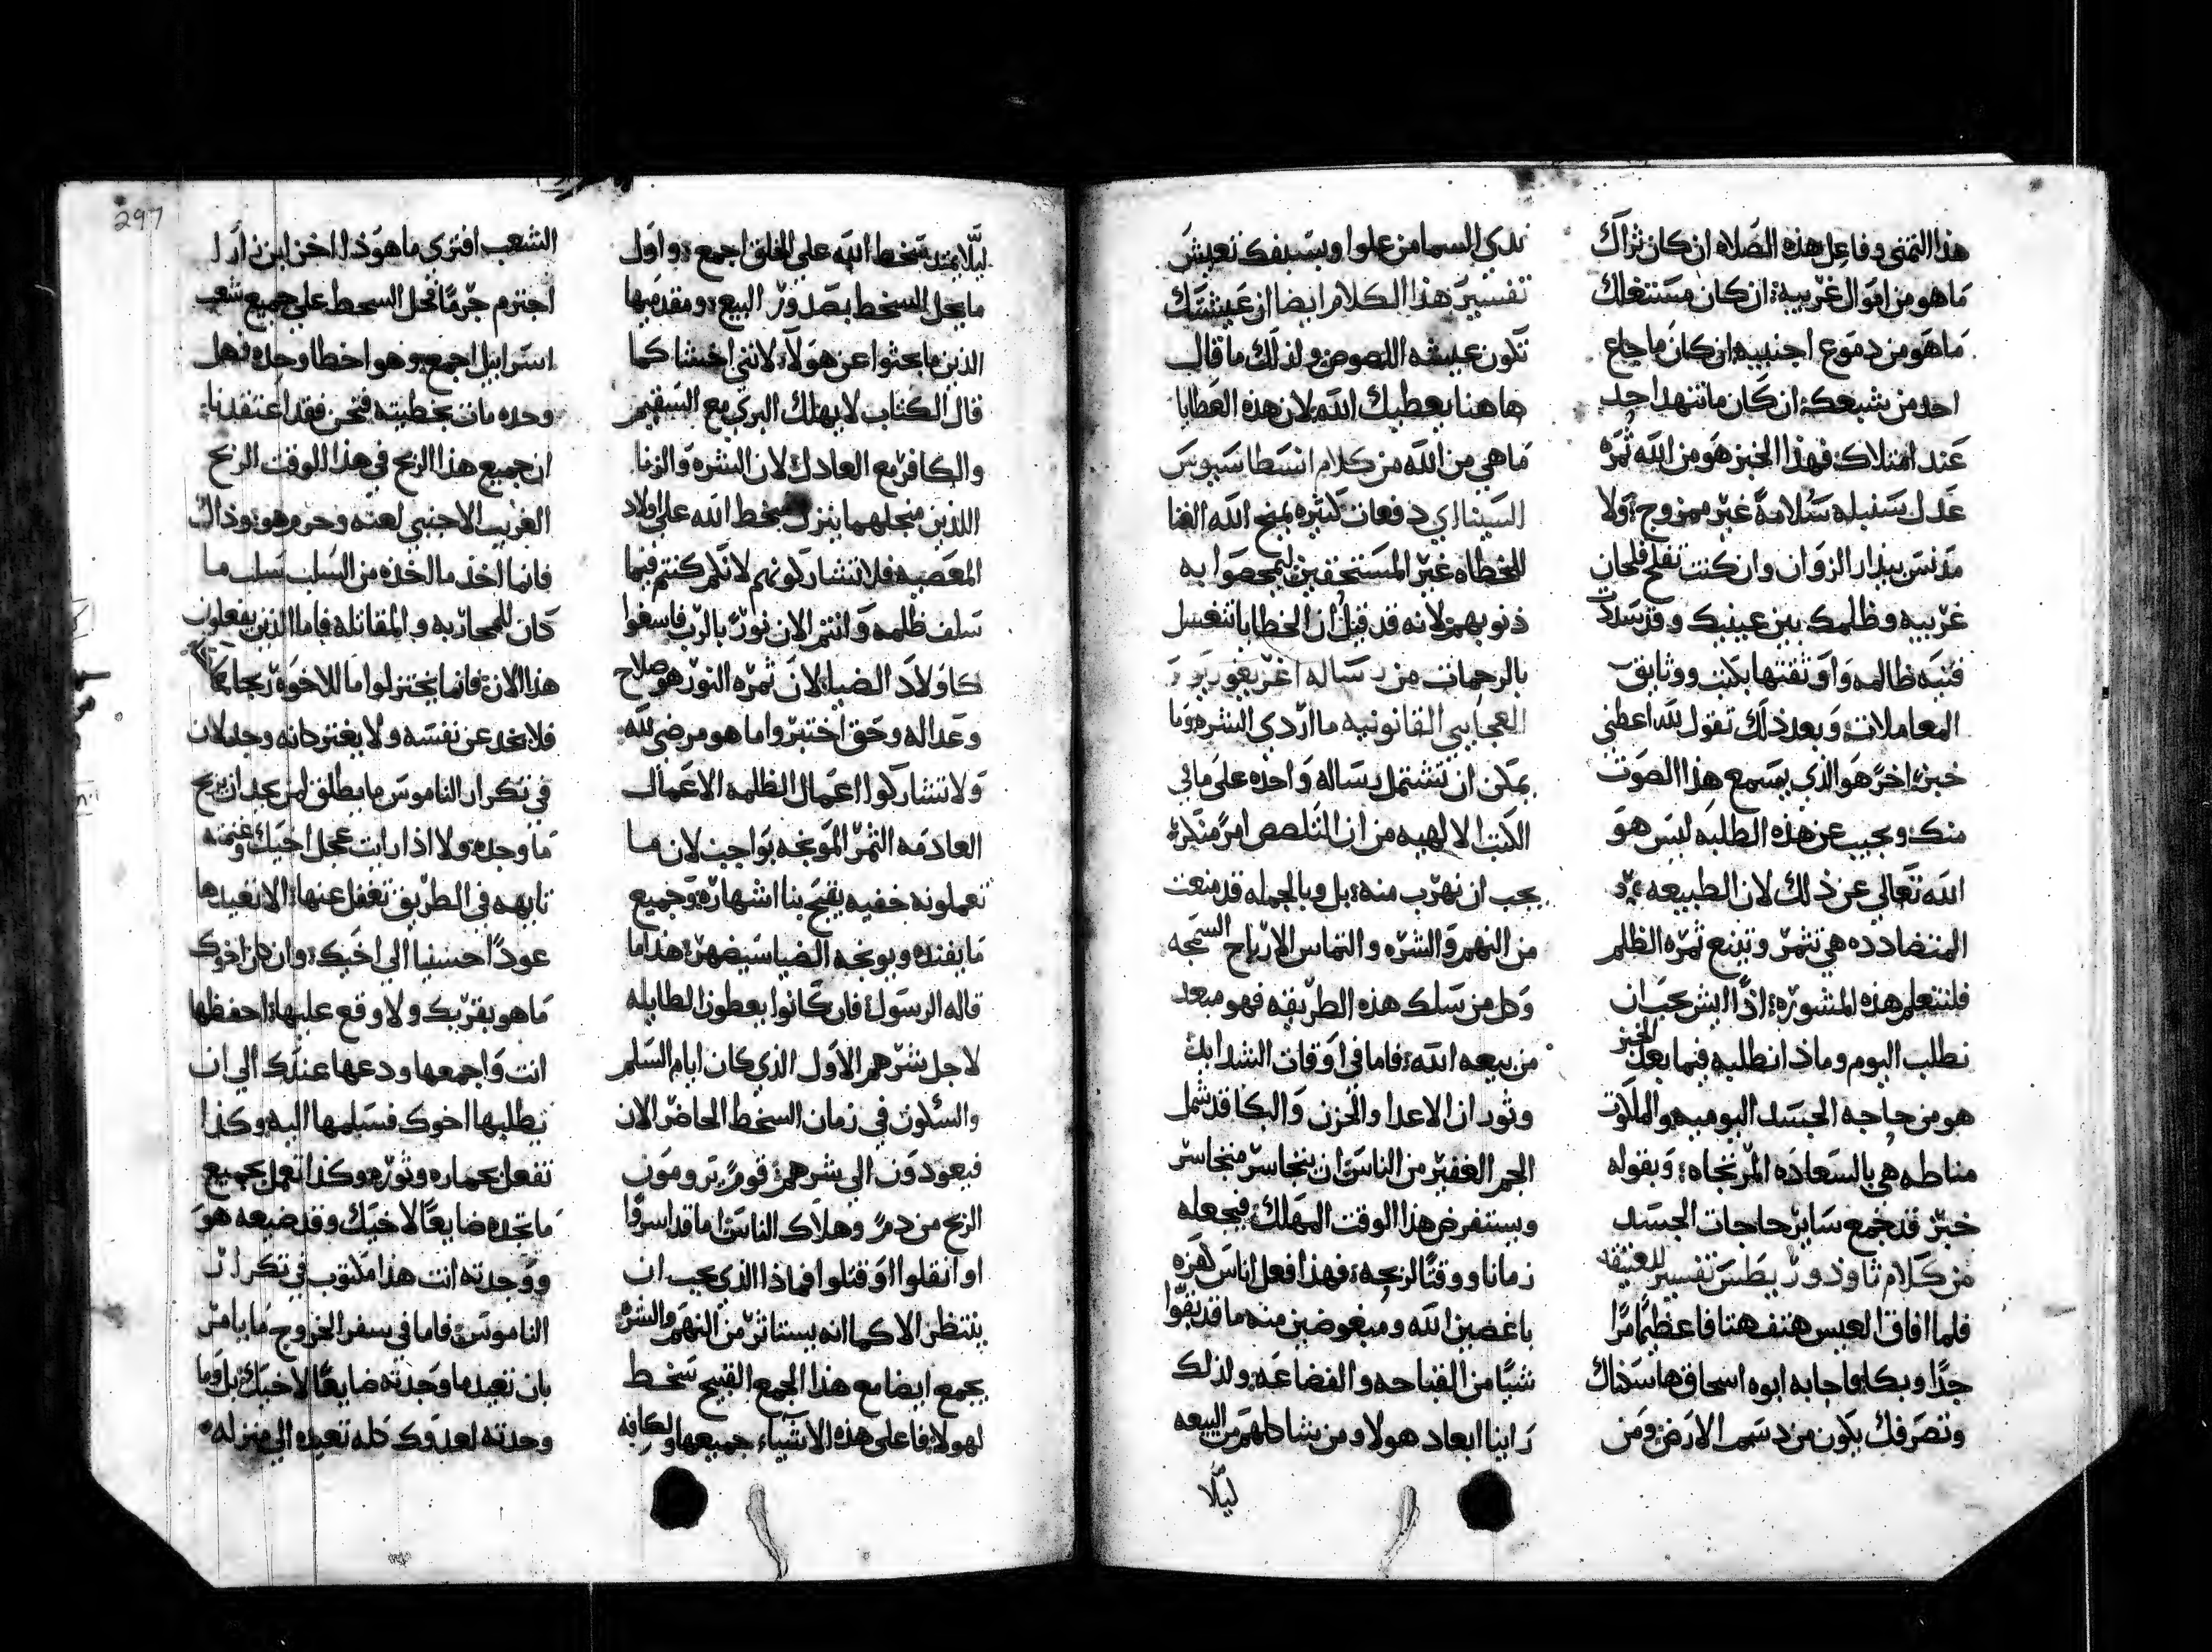 هذا التمني وفاعل هذه الصلاه ان كان ثراك
ما هو من اموال غريبه ان كان مستغلك
ما هو من دموع اجنبيه ان كان ما جاع
احد من شبعك ان كان ما تنهد احد
عند امتلاك فهذا الخبز هو من الله ثمره
عدل سنبله سلامةً غير ممزوج ولا
مدنس ببذار الزوان وان كنت تفلح فلحان
غريبه وظلمك بين عينيك وقد سدت
قنيه ظالمه واوثقتها بكتب ووثايق
المعاملات وبعد ذلك تقول لله اعطني
خبزً اخرً هو الذي يسمع هذا الصوت
منك ويجيب عن هذه الطلبه ليس هو
الله تعالي عن ذلك لان الطبيعه
المتضادده هي تثمر وتينع ثمره الظلم
فلنتعلم هذه المشوره اذًا ايش يجب ان
نطلب اليوم وماذا نطلبه فيما بعد الخبز
هو من حاجه الجسد اليوميه والملكوت
مناطه هي بالسعاده المرتجاه وبقوله
خبز قد جمع ساير حاجات الجسد
من كلام ثاودوريطس تفسير للعتيقه
فلما افاق العيس هتف هتافا عظيمًا مرًا
جدًا وبكا فاجابه ابوه اسحاق ها سكناك
وتصرفك يكون من دسم الارض ومن
ندي السما من علوا وبسيفك تعيش
تفسير هذا الكلام ايضا ان عيشتك
تكون عيشه اللصوص ولذلك ما قال
هاهنا يعطيك الله لان هذه العطايا
ما هي من الله من كلام انسطاسيوس
السيناءي دفعات كثيره يمنح الله الغنا
للخطاه غير المستحقين ليمحصوا به
ذنوبهم لانه قد قيل ان الخطايا تنغسل
بالرحمات من رساله اغريغوريوس
العجايبي القانونيه ما اردي الشره وما
يمكن ان تشتمل رساله واحده علي ما في
الكتب الالهيه من ان التلصص امرً منكرً
يجب ان نهرب منه بل وبالجمله قد منعت
من النهم والشره والتماس الارباح السمجه
وكل من سلك هذه الطريقه فهو مبعد
من بيعه الله فاما في اوقات الشدايد
وثوران الاعدا والحزن والبكا قد شمل
الجم الغفير من الناس ان يتجاسر متجاسر
ويستفرض هذا الوقت المهلك فيجعله
زمانا ووقتًا لربحه فهذا فعل اناس كفره
باغضين الله ومبغوضين منه ما قد بقوا
شيًا من القباحه والفضاعه ولذلك
راينا ابعاد هولا ومن شاكلهم من البيعه
ليلا
ليلا يمتد سخط الله علي الخلق اجمع واول
ما يحل السخط بصدور البيع ومقدميها
الذين ما بحثوا عن هولاء لانني اخشا كما
قال الكتاب لا يهلك البري مع السقيم
والكافر مع العادل لان الشره والزنا
اللذين من جلهما ينزل سخط الله علي اولاد
المعصيه فلا تشاركونهم لانكم كنتم فيما
سلف ظلمه وانتم الان نورً بالرب فاسعوا
كاولاد الضياء لان ثمره النور هو صلاح
وعداله وحق اختبروا ما هو مرضي لله
ولا تشاركوا اعمال الظلمه الاعمال
العادمه الثمر الموبخه بواجب لان ما
تعملونه خفيه يقبح بنا اشهاره وجميع
ما يفنده ويوبخه الضيا سيضهر هذا ما
قاله الرسول فان كانوا يعطون الطايله
لاجل شرهم الاول الذي كان ايام السلم
والسكون في زمان السخط الحاضر الان
فيعودون الي شرهم قومً يرومون
الربح من دمً وهلاك الناس اما قد اسروا
او انقلوا او قتلوا فماذا الذي يجب ان
ينتظر الا كما انه يستاثر من النهم والشره
يجمع ايضا مع هذا الجمع القبيح سخط
لهولاء فاعلي هذه الاشياء جميعها ولكافه
الشعب افتري ما هوذا اخر ابن زارا
اجترم جرمًا فحل السخط علي جميع شعب
اسراييل اجمع وهو اخطا وحده فهل
وحده مات بخطيته فنحن فقد اعتقدنا
ان جميع هذا الربح في هذا الوقت الربح
الغريب الاجنبي لعنه وحرم هو وذاك
فانما اخذ ما اخذه من السلب سلب ما
كان للمحاربه والمقاتله فاما الذين يفعلون
هذا الان فانما يختزلوا ما للاخوه رجا
فلا يخدعن نفسه ولا يغتر كانه وجد لان
في تكرار الناموس ما يطلق لمن يجد ان يربح
ما وجده ولا اذا رايت عجل اخيك وغنمته
تايهه في الطريق تغفل عنها الا تعيدها
عودًا حسنًا الي اخيك وان كان اخوك
ما هو بقربك ولا وقع عليها احفظها
انت واجمعها ودعها عندك الي ان
يطلبها اخوك فسلمها اليه وكذا
تفعل بحماره وثوره وكذا تعمل بجميع
ما تجده ضايعًا لاخيك وقد ضيعه هو
ووجدته انت هذا مكتوب في تكرار
الناموس فاما في سفر الخروج ما يامر
بان تعيد ما وجدته ضايعًا لاخيك بل وما
وجدته لعدوك كله تعيده الي منزله
297